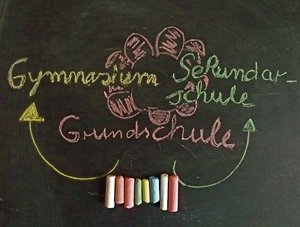 Gymnasium
Sekundar-
schule
Grundschule